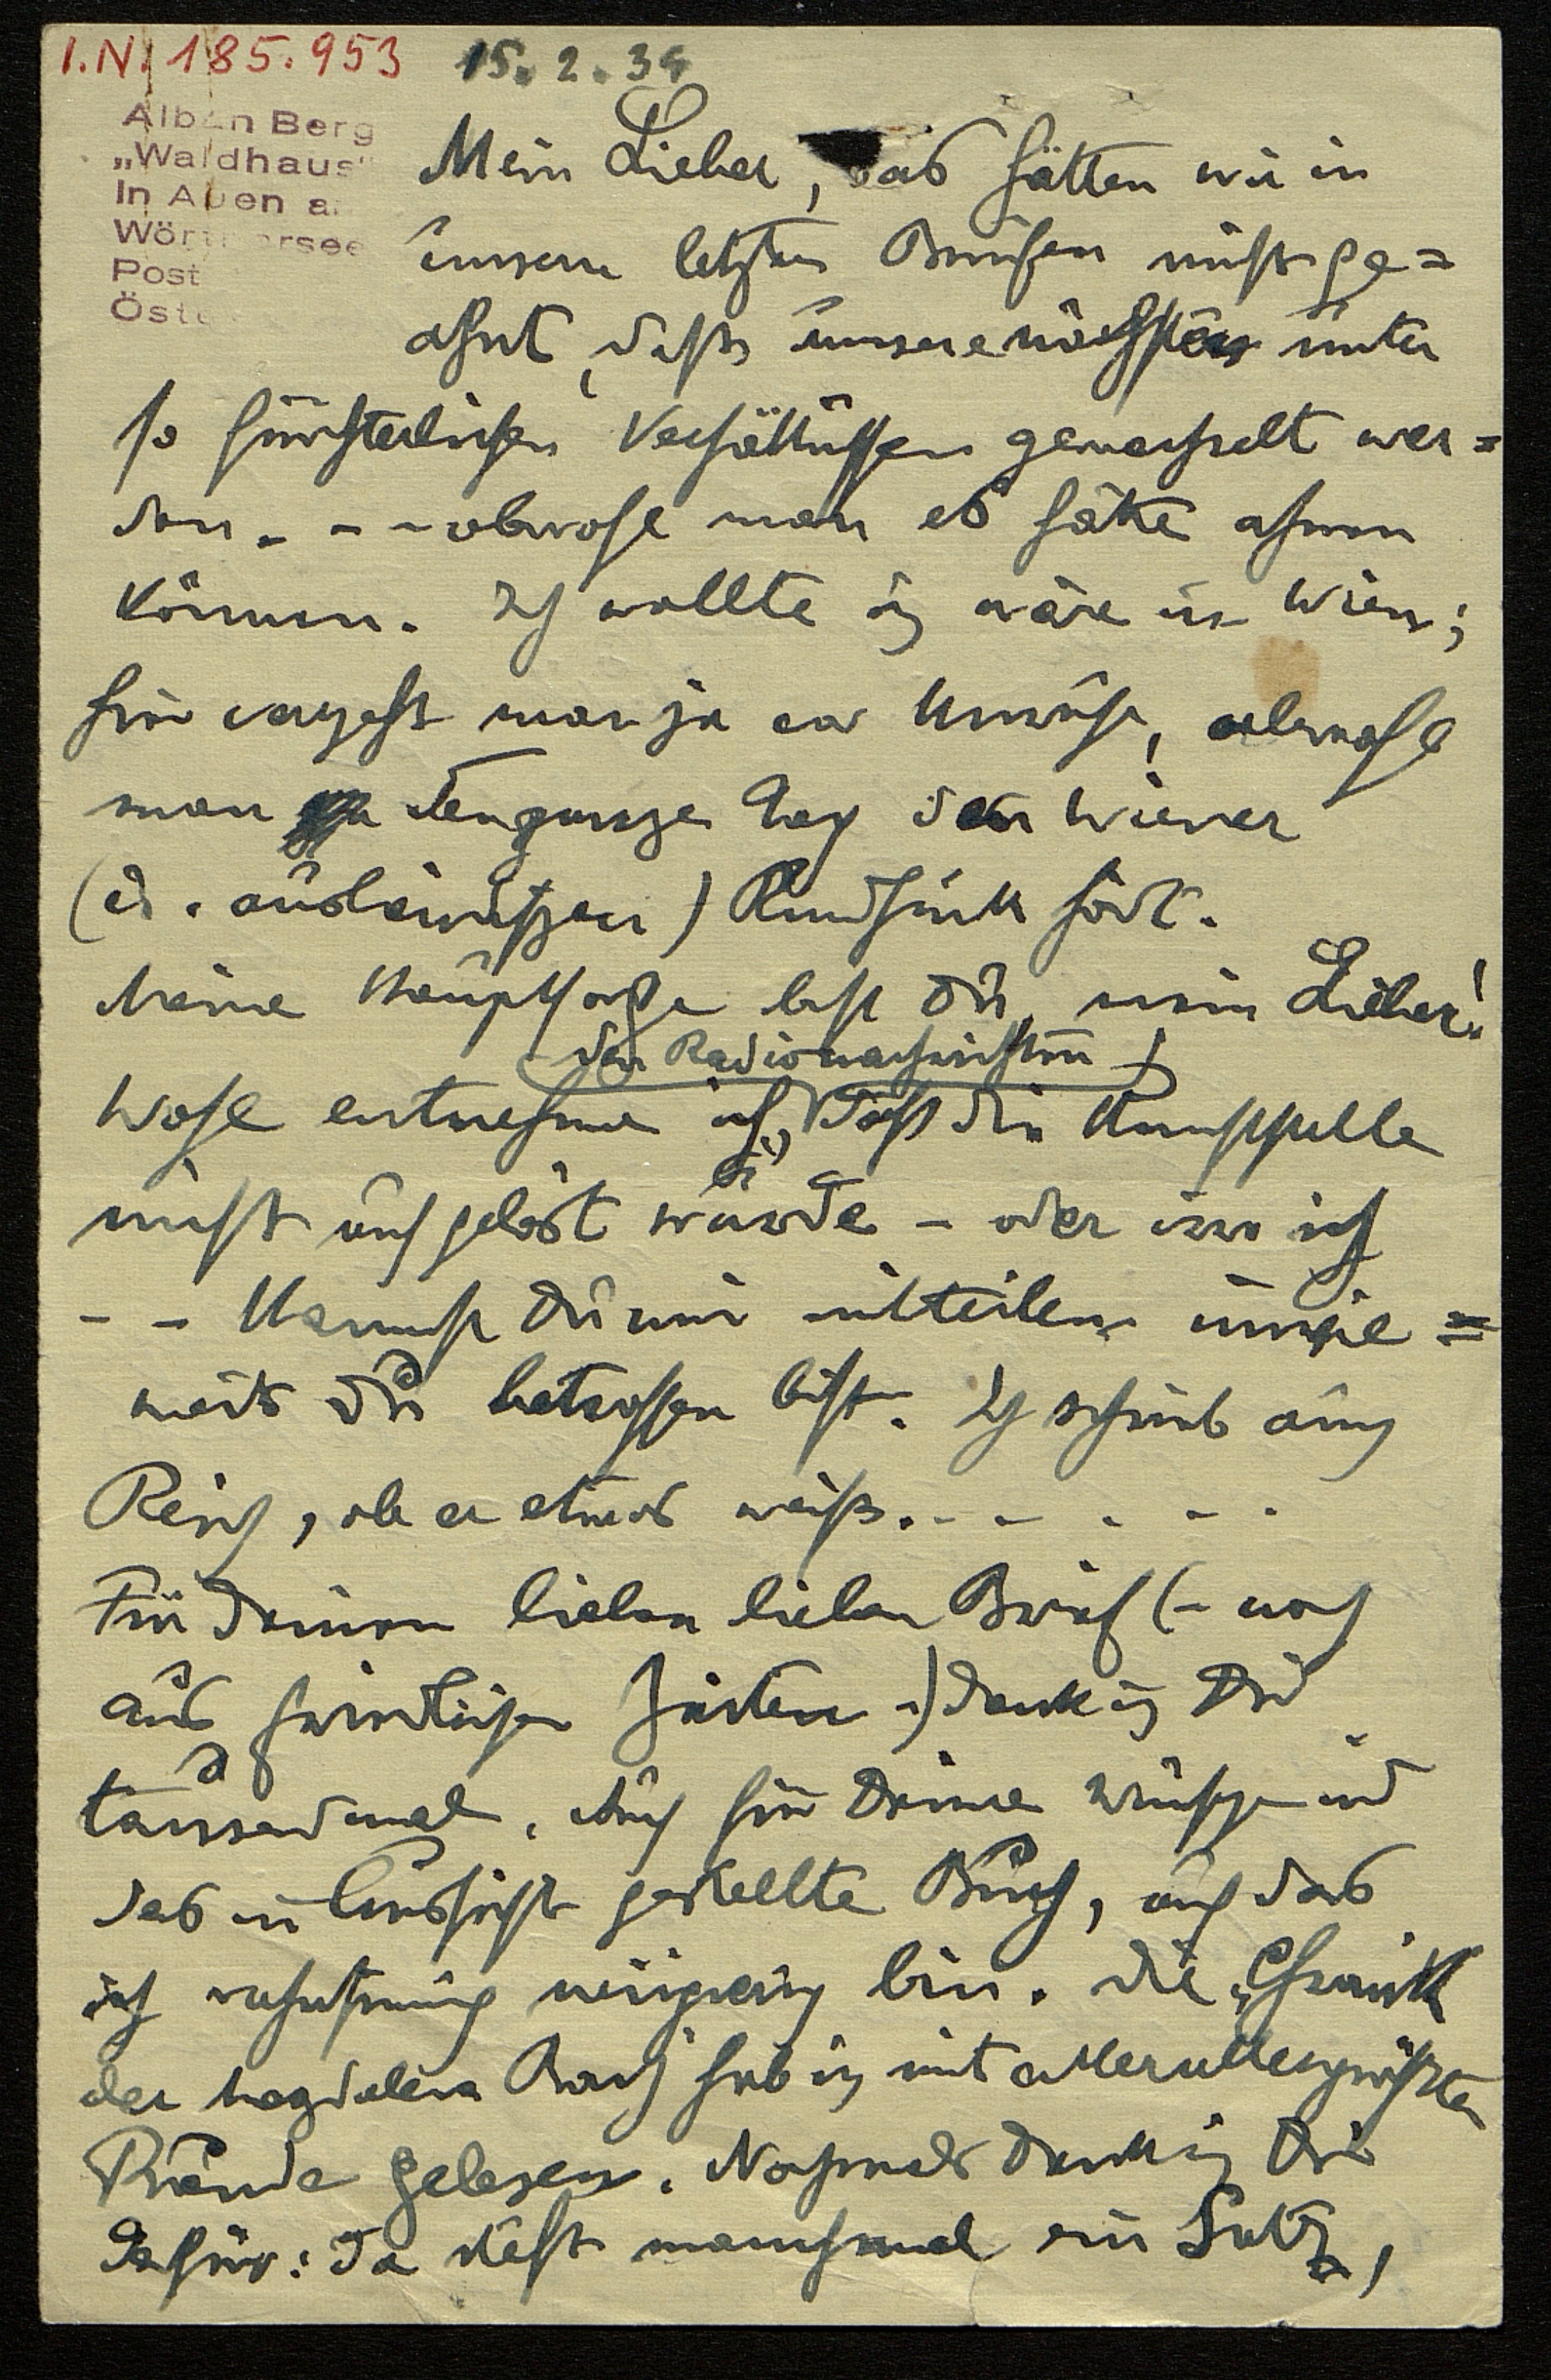 I.N. 185.953
15.2.34
Alban Berg
„Waldhaus"
In Auen a
Wörthersee
Post
Öste
Mein Lieber, das hätten wir in
unseren letzten Briefen nicht ge=
ahnt, dass unsere nächsten unter
so fürchterlichen Verhältnissen gewechselt wer=
den. - - obwohl man es hätte ahnen
können. Ich wollte ich wäre in Wien;
hier vergeht man ja vor Unruhe, obwohl
man den ganzen Tag den Wiener
(u. ausländischen) Rundfunk hört.
Meine Hauptsorge bist Du, mein Lieber!
den Radionachrichten
Wohl entnehme ich, dass die Kunststelle
nicht aufgelöst würde - oder irre ich
- - Kannst Du mir mitteilen inwie=
weit Du betroffen bist. Ich schrieb auch
Reich, ob er etwas weiß. - - - - -
Für Deinen lieben lieben Brief (- noch
aus friedlichen Zeiten -) dank ich Dir
tausendmal. Auch für Deine Wünsche und
das in Aussicht gestellte Buch, auf das
ich wahnsinnig neugierig bin. Die „Chronik
der Magdalena Bach" hab ich mit allerallergrößter
Freude gelesen. Nochmals dank ich Dir
dafür: Da steht manchmal ein Satz,